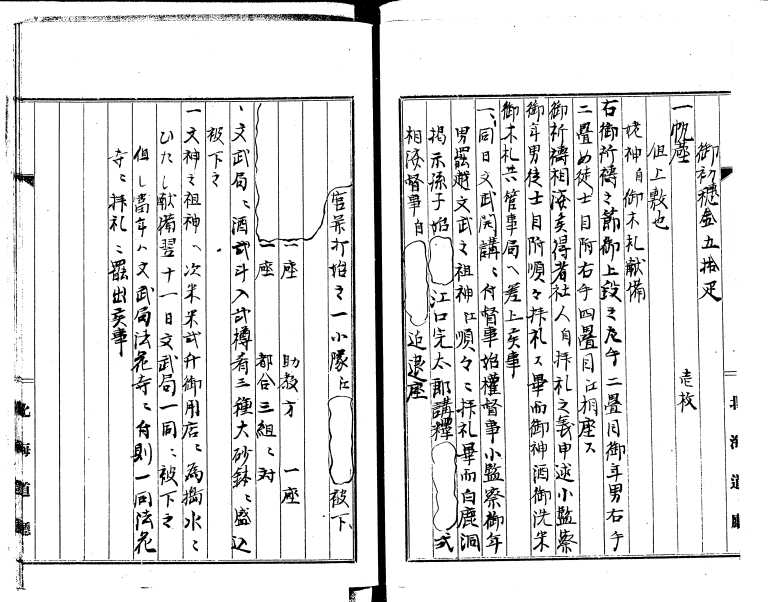 御初穂金五拾疋
一帆莚　壱枚
但上敷也
姥神自御木札献備
右御祈祷之節御上段之左ゟ二畳目御年男右ゟ
二畳め徒士目附右ゟ四畳目江相座ス
御祈祷相済矣得者社人自拝礼之義申述小監察
御年男徒士目附順々拝礼ス畢而御神酒御洗米
御木札共管事局へ差上矣事
一、同日文武開講ニ付督事始權督事小監察御年
男罷越文武之祖神江順々ニ拝礼畢而白鹿洞
掲示孫子始
江口完太郎講釋
弐
相済督事自
追退座
北海道廳
官兼打始之一小隊江
被下
一座　助教方　一座
一座　都合三組ニ対
、文武局ニ酒弐斗入弐樽肴三種大砂鉢ニ盛込
被下之
一文神之祖神へ次米米弐升御用店ニ為搗水ニ
ひたし献備翌十一日文武局一同ニ被下之
但し当年ハ文武局法花寺ニ付則一同法花
寺ニ拝礼ニ罷出矣事
北海道廳